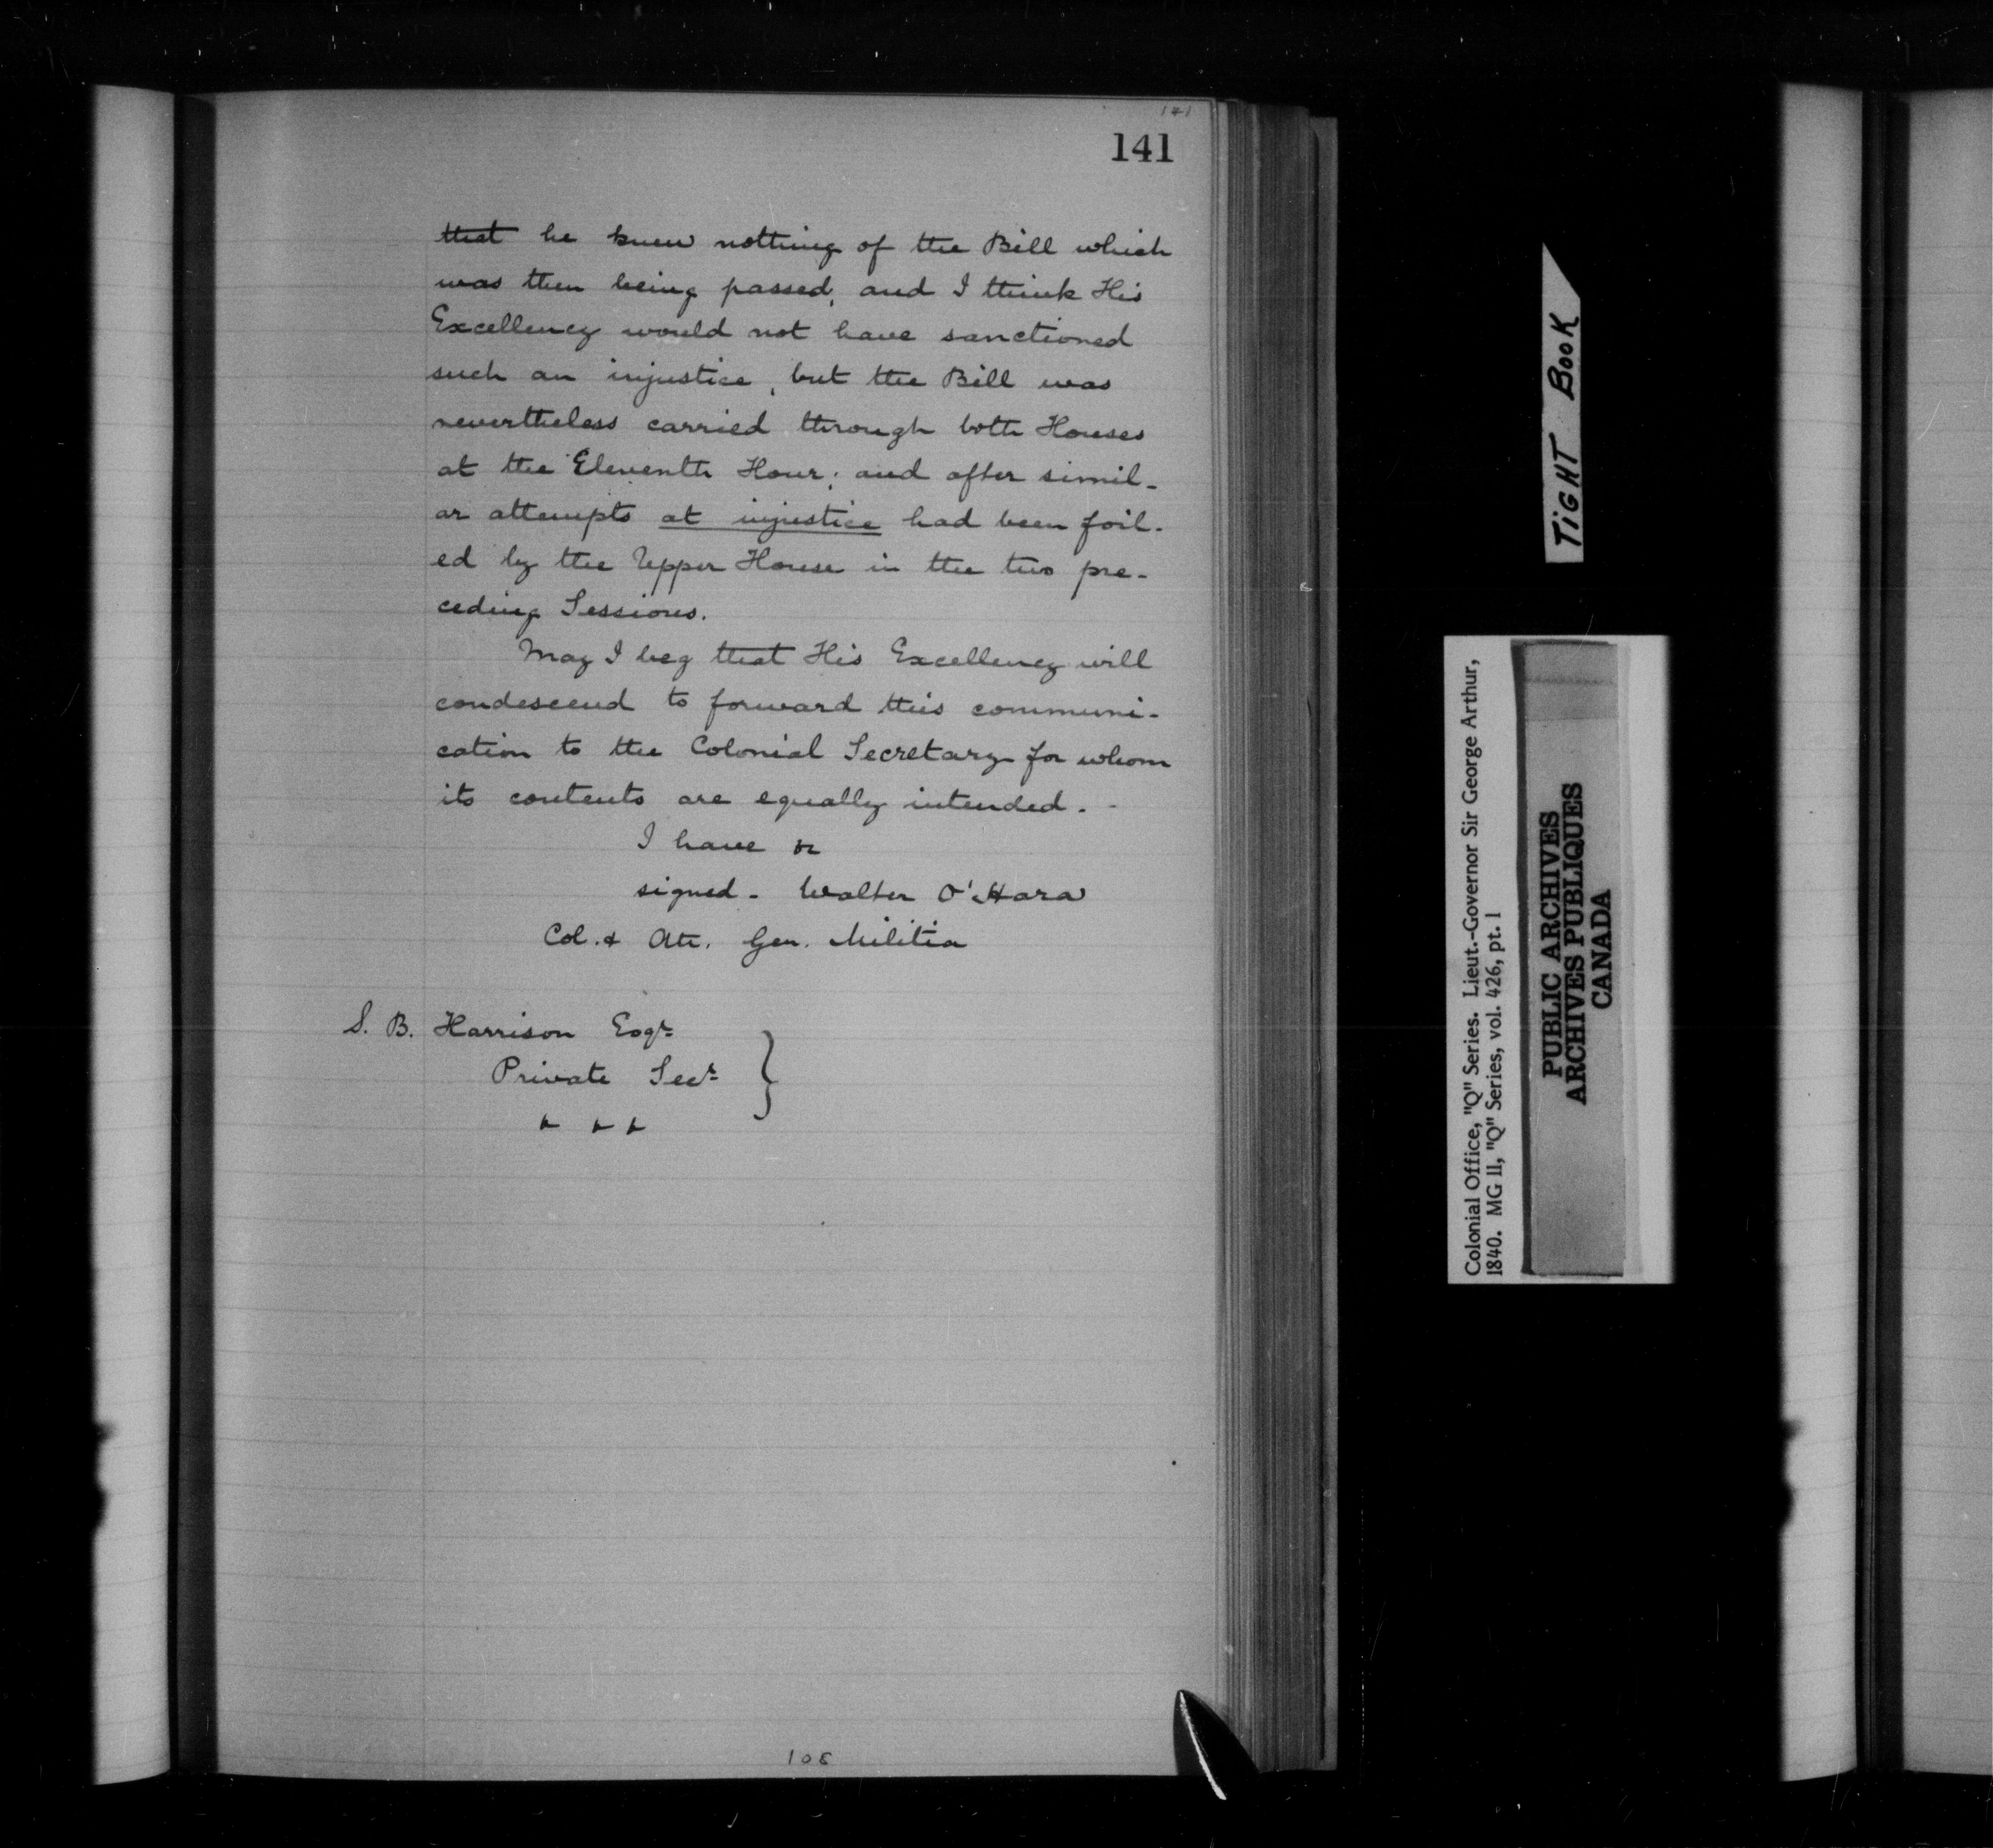 141
141
that he knew nothing of the Bill which
was then being passed, and I think His
Excellency would not have sanctioned
such an injustice, but the Bill was
nevertheless carried through both Houses
at the Eleventh Hour; and after simil-
ar attempts at injustice had been foil-
ed by the Upper House in the two pre-
ceding Sessions.
May I beg that His Excellency will
condescend to forward this communi-
cation to the Colonial Secretary for whom
its contents are equally intended. -
I have
signed - Walter O'Hara
Col. & Gen. Militia
S. B. Harrison Esqr
Private Secr
108
TIGHT BOOK
Colonial Office, "Q" Series. Lieut.-Governor Sir George Arthur,
1840. MG 11, "Q" Series, vol. 426, pt. 1
PUBLIC ARCHIVES
ARCHIVES PUBLIQUES
CANADA